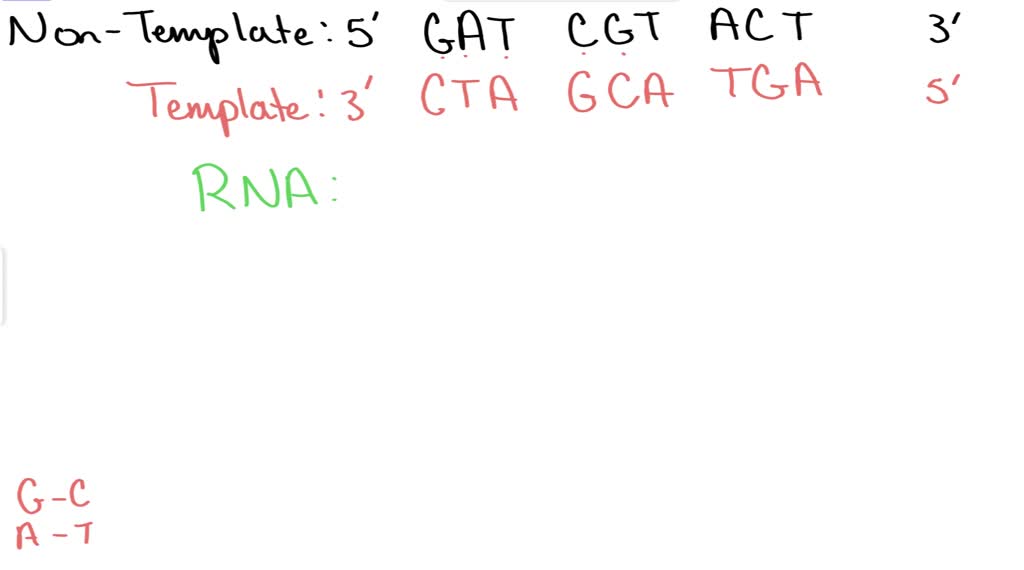 Non-Template: 5' GAT CGT ACT 3'
Template: 3' CTA GCA TGA 5'
RNA:
G-C
A-T